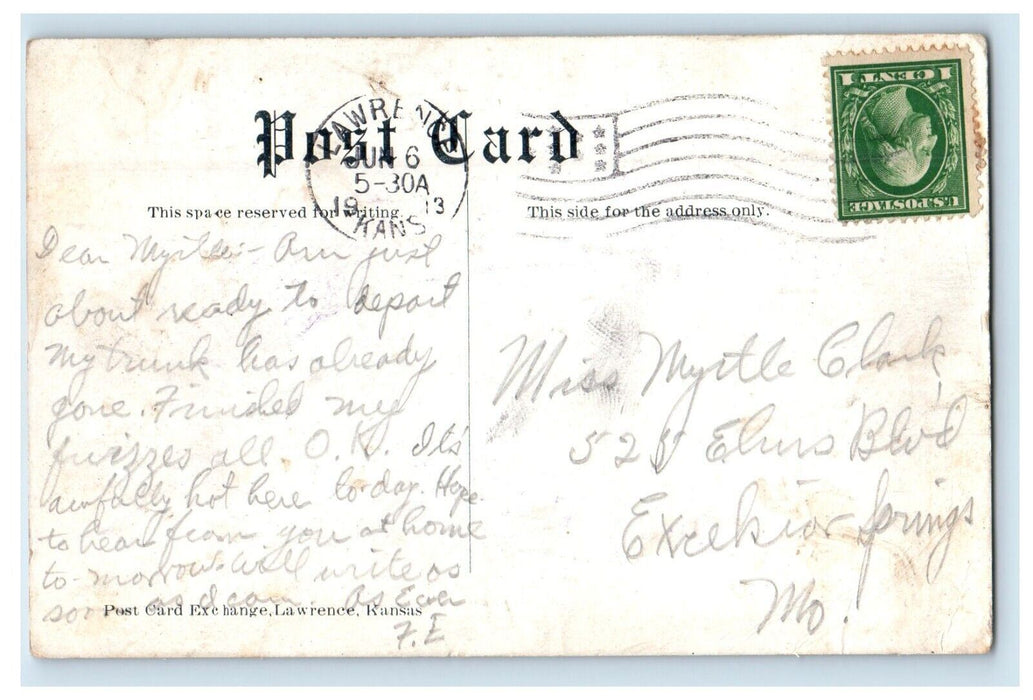 Post Card
LAWRENCE
JUN 6
5-30A
19 13
KANS
1 CENT 1
U.S. POSTAGE
This space reserved for writing.
This side for the address only.
Dear Myrtle:- Am just
about ready to depart
My trunk has already
gone. Finished my
quizzes all O.K. It's
awfully hot here to-day. Hope
to hear from you at home
to-morrow. Will write as
soon as I can. As Ever
F. E
Miss Myrtle Clark,
Elms Blvd
Excelsior Springs
Mo.
Post Card Exchange, Lawrence, Kansas